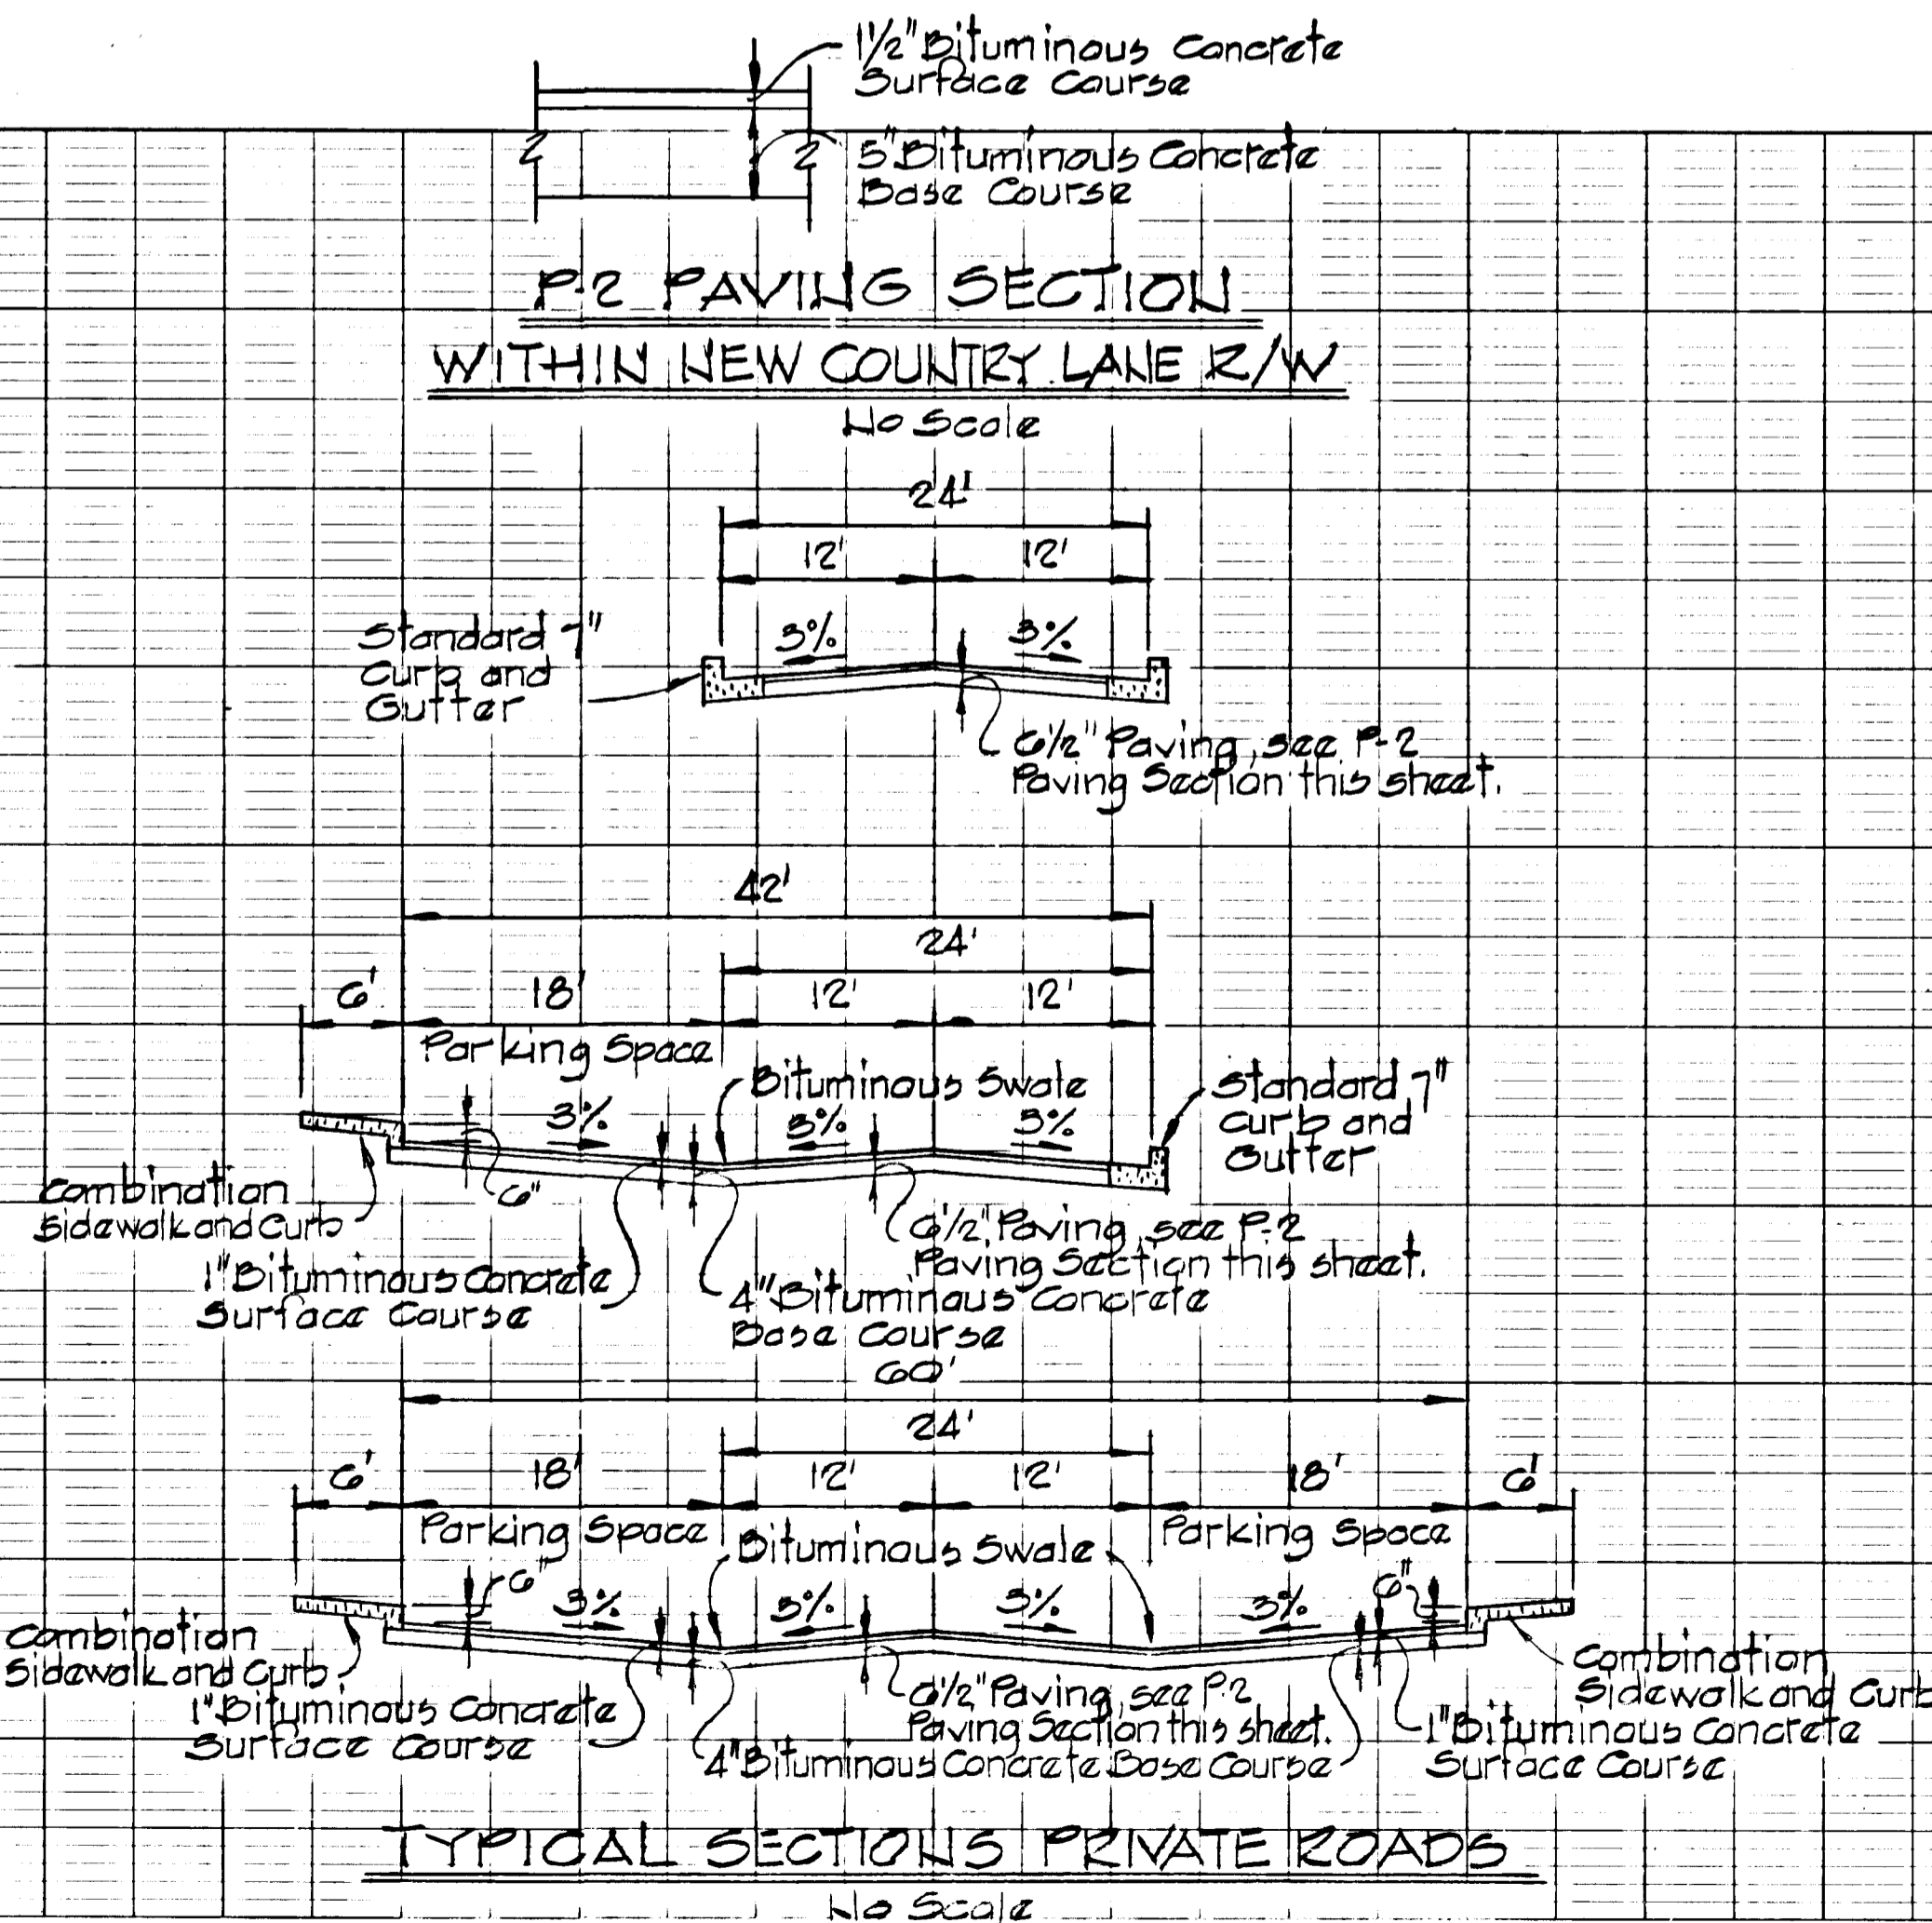 1 1/2" Bituminous Concrete
Surface Course
5" Bituminous Concrete
Base Course
P-2 PAVING SECTION
WITHIN NEW COUNTRY LANE R/W
No Scale
24'
12' 12'
Standard 7"
Curb and
Gutter
3% 3%
6 1/2" Paving, see P-2
Paving Section this sheet.
42'
24'
6' 18' 12' 12'
Parking Space
Bituminous Swale
Standard 7"
Curb and
Gutter
3% 3% 3%
6"
Combination
Sidewalk and Curb
6 1/2" Paving, see P-2
Paving Section this sheet.
1" Bituminous Concrete
Surface Course
4" Bituminous Concrete
Base Course
60'
24'
6' 18' 12' 12' 18' 6'
Parking Space Parking Space
Bituminous Swale
6" 3% 3% 3% 3% 6"
Combination
Sidewalk and Curb
Combination
Sidewalk and Curb
1" Bituminous Concrete
Surface Course
6 1/2" Paving, see P-2
Paving Section this sheet.
4" Bituminous Concrete Base Course
1" Bituminous Concrete
Surface Course
TYPICAL SECTIONS PRIVATE ROADS
No Scale